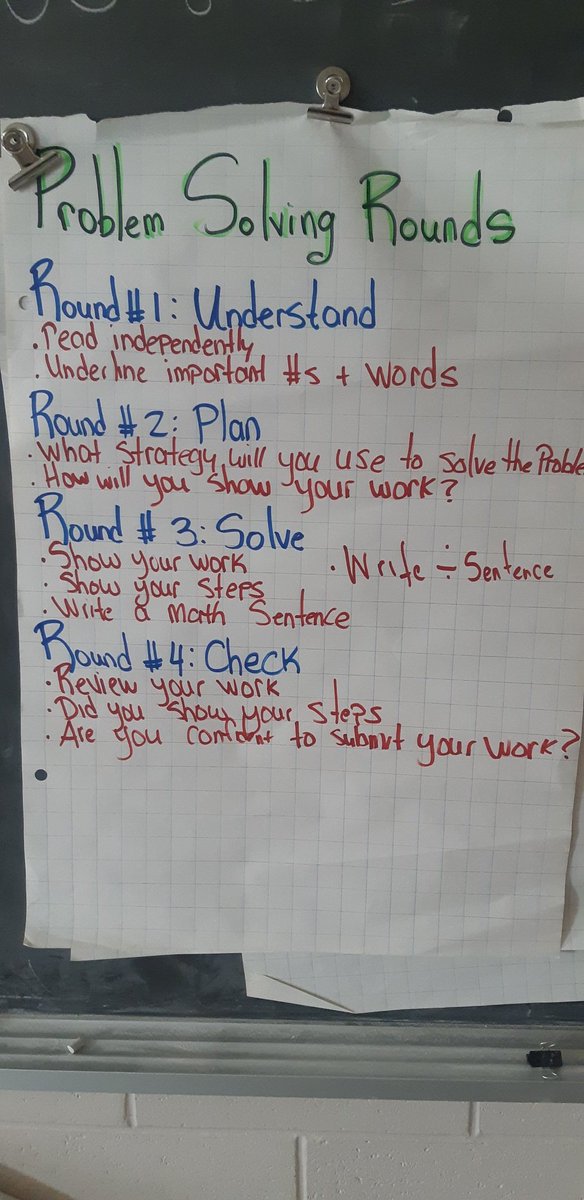 Problem Solving Rounds
Round #1: Understand
• read independently
• Underline important #s + words
Round #2: Plan
• What strategy will you use to solve the Proble
• How will you show your work?
Round # 3: Solve
• Show your work
• Show your steps
• Write a math Sentence
• Write ÷ Sentence
Round #4: Check
• Review your work
• Did you show your steps
• Are you to submit your work?